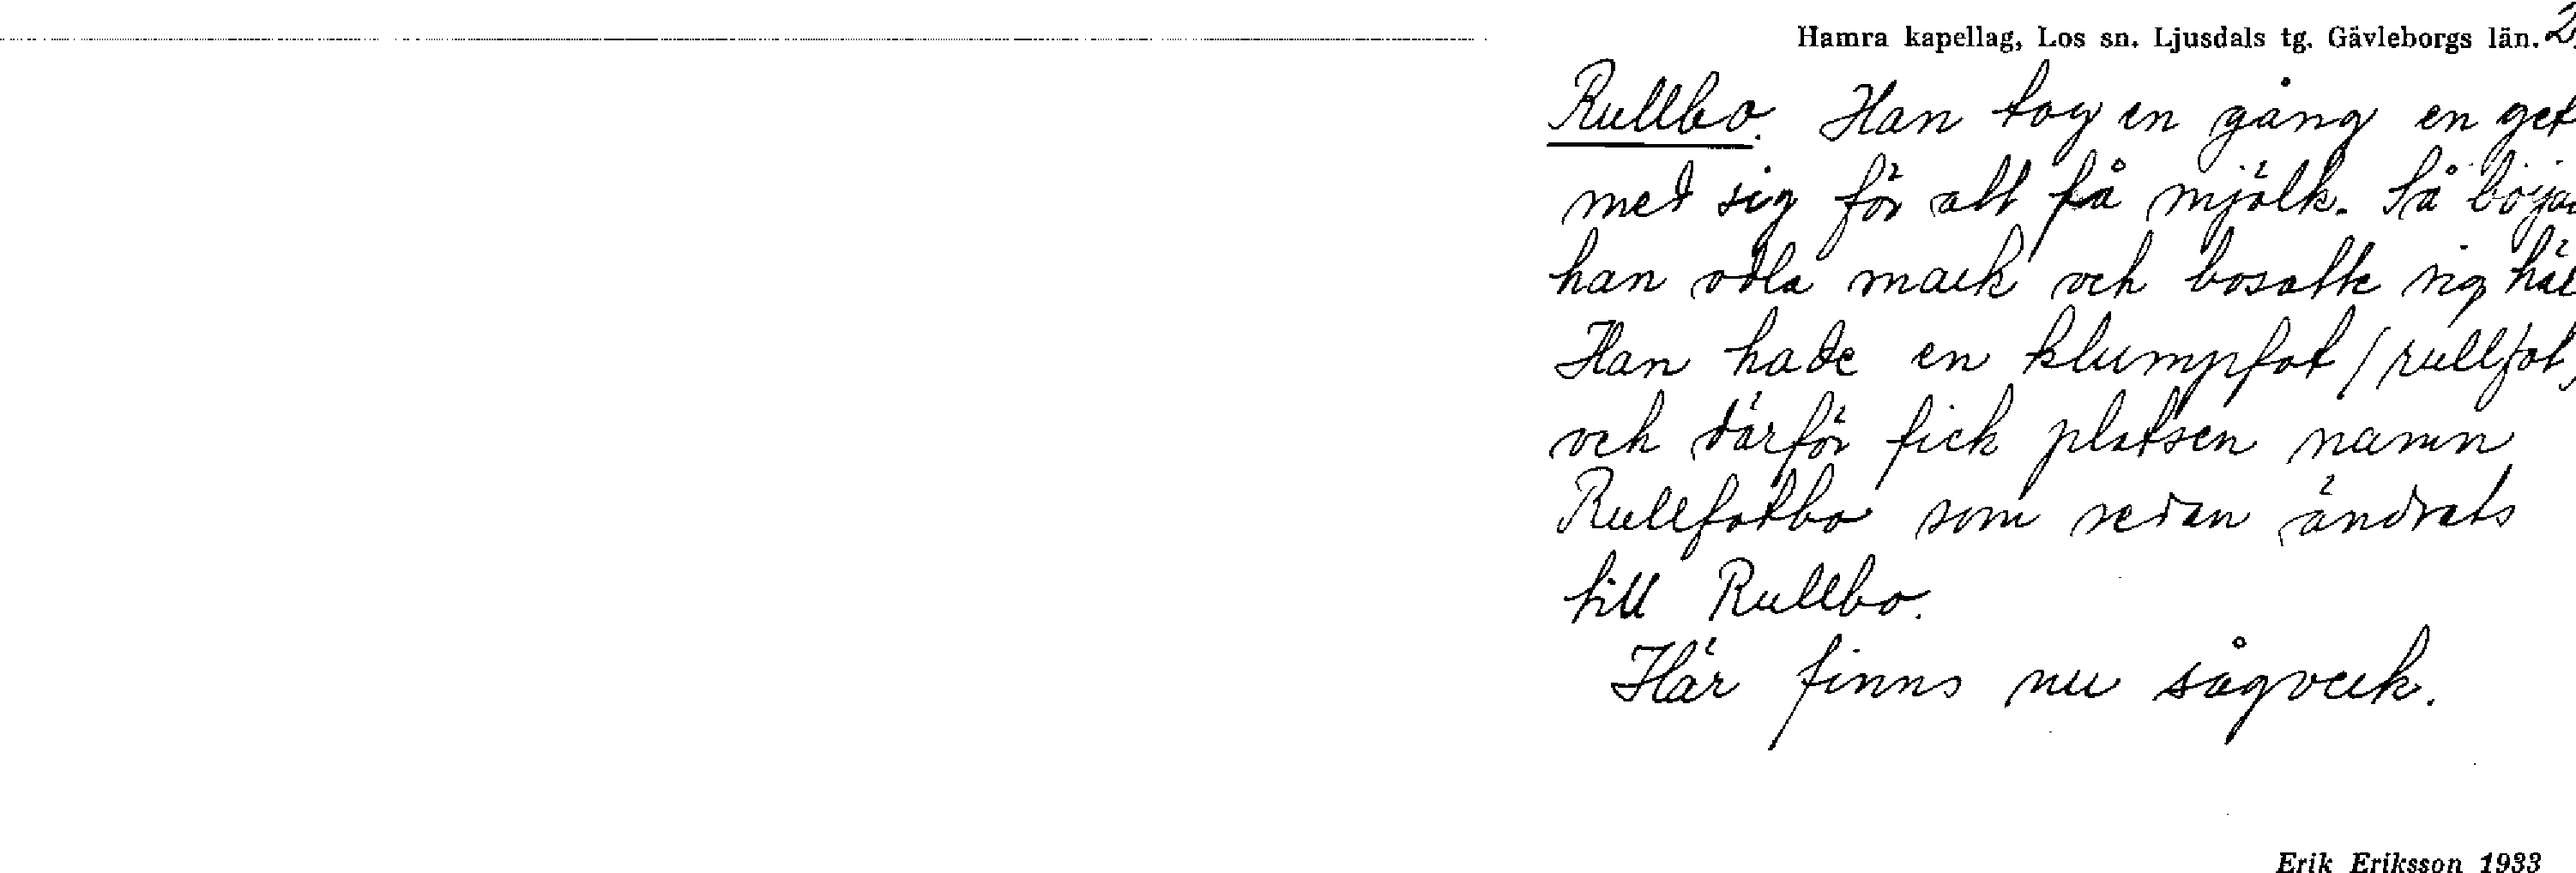 Hamra kapellag, Los sn. Ljusdals tg. Gävleborgs län. 2
Rullbo. Han tog en gång en get
med sig för att få mjölk. Så börja
han odla mark och bosatte sig här
Han hade en klumpfot /rullfot/
och därför fick platsen namn
Rullfotbo som sedan ändrats
till Rullbo.
Här finns nu sågverk.
Erik Eriksson 1933